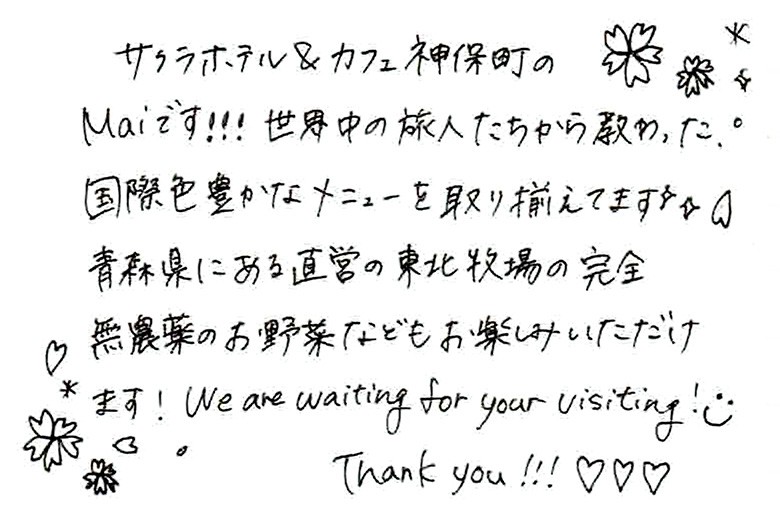 サクラホテル&カフェ神保町の
Maiです!!! 世界中の旅人たちから教わった
国際色豊かなメニューを取り揃えてます
青森県にある直営の東北牧場の完全
無農薬のお野菜などもお楽しみいただけ
ます! We are waiting for your visiting!
Thank you!!! ♡♡♡